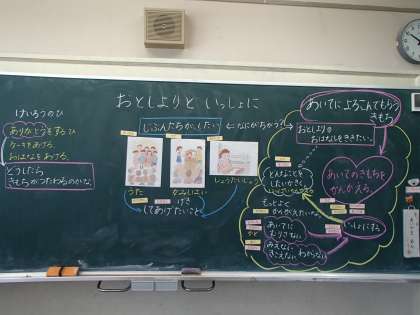 おとしよりと いっしょに
けいろうのひ
ありがとうをするひ
ケーキをあげる
おはなをあげる。
どうしたら
きもちがつたわるのかな。
じぶんたちが、したい
←なにがちがう?
うた
げき
しょうたいじょう
してあげたいこと
あいてによろこんでもらう
きもち
おとしよりの
おはなしをききたい。
どんなことを
したいかきく
もっとよく
かんがえたいな。
あいてに
むりさせない
みえない
きこえない
わからない
あいてのきもちを
かんがえる。
いっしょにする